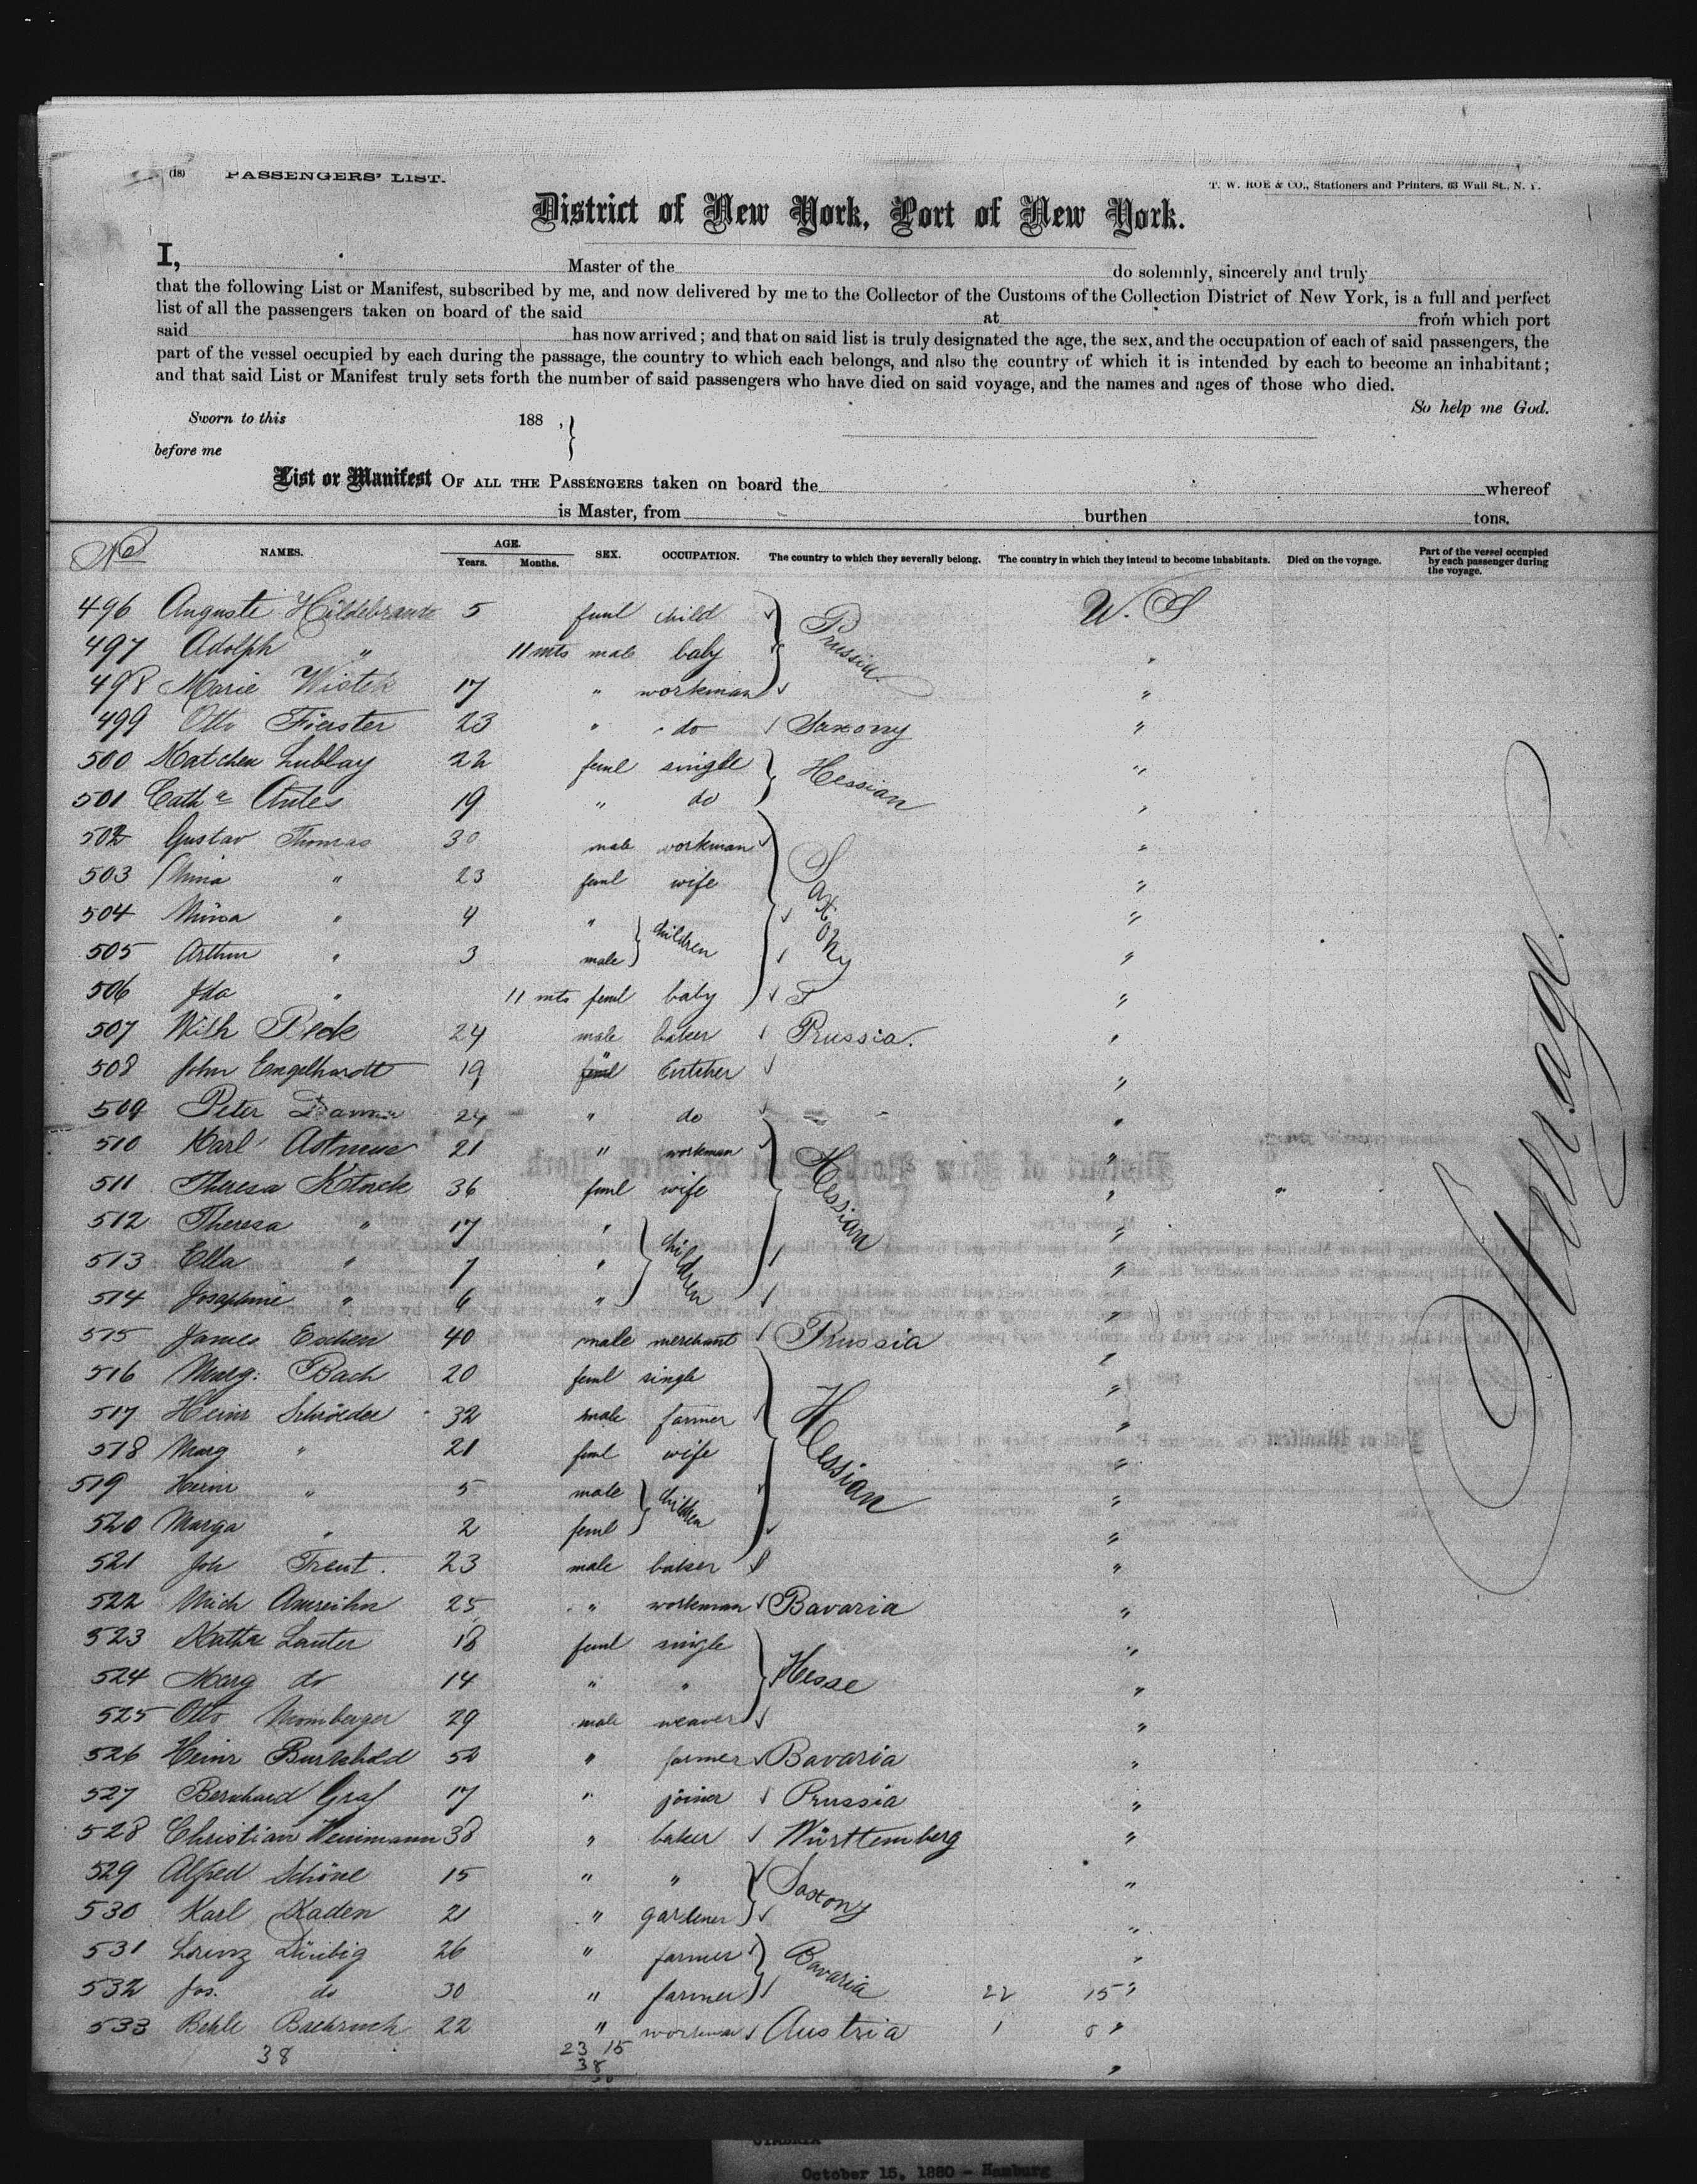 (18) PASSENGERS' LIST.
T. W. ROE & CO., Stationers and Printers, 63 Wall St., N. Y.
District of New York, Port of New York.
I, Master of the do solemnly, sincerely and truly
that the following List or Manifest, subscribed by me, and now delivered by me to the Collector of the Customs of the Collection District of New York, is a full and perfect
list of all the passengers taken on board of the said at from which port
said has now arrived; and that on said list is truly designated the age, the sex, and the occupation of each of said passengers, the
part of the vessel occupied by each during the passage, the country to which each belongs, and also the country of which it is intended by each to become an inhabitant;
and that said List or Manifest truly sets forth the number of said passengers who have died on said voyage, and the names and ages of those who died.
So help me God.
Sworn to this 188 ,
before me
List or Manifest OF ALL THE PASSENGERS taken on board the whereof
is Master, from burthen tons.
No NAMES. AGE. Years. Months. SEX. OCCUPATION. The country to which they severally belong. The country in which they intend to become inhabitants. Died on the voyage. Part of the vessel occupied by each passenger during the voyage.
496 Auguste Hildebrandt 5 feml child Prussia U. S
497 Adolph " 11 mts male baby "
498 Marie 17 " workman "
499 Otto Förster 23 " do Saxony "
500 Katchen Lublay 22 feml single Hessian "
501 Cath a Antes 19 " do "
502 Gustav Thomas 30 male workman Saxony "
503 Mina " 23 feml wife "
504 Mina " 4 " children "
505 Arthur " 3 male "
506 Ida " 11 mts feml baby "
507 Wilh Peck 24 male baker Prussia. "
508 John Engelhardt 19 " butcher "
509 Peter 24 " do "
510 Karl 21 " workman Hessian "
511 Theresa 36 feml wife "
512 Theresa " 17 " children "
513 Ella " 7 " "
514 Josephine " 6 " "
515 James Eschen 40 male merchant Prussia "
516 Marg: Bach 20 feml single Hessian "
517 Heinr Schröder 32 male farmer "
518 Marg " 21 feml wife "
519 Heinr " 5 male children "
520 Marga " 2 feml "
521 Joh Trent. 23 male baker "
522 Mich Amreihn 25 " workman Bavaria "
523 Katha Lauter 18 feml single Hesse "
524 Marg do 14 " " "
525 Otto Momberger 29 male weaver "
526 Heinr Burkhold 52 " farmer Bavaria "
527 Bernhard Graf 17 " joiner Prussia "
528 Christian Weinmann 38 " baker Württemberg "
529 Alfred Schöne 15 " " Saxony "
530 Karl Kaden 21 " gardener "
531 Lorenz Dürbig 26 " farmer Bavaria "
532 Jos. do 30 " farmer 22 15 "
533 22 " workman Austria 1 0 "
38 23 15
38
Steerage.
October 15, 1880 - Hamburg